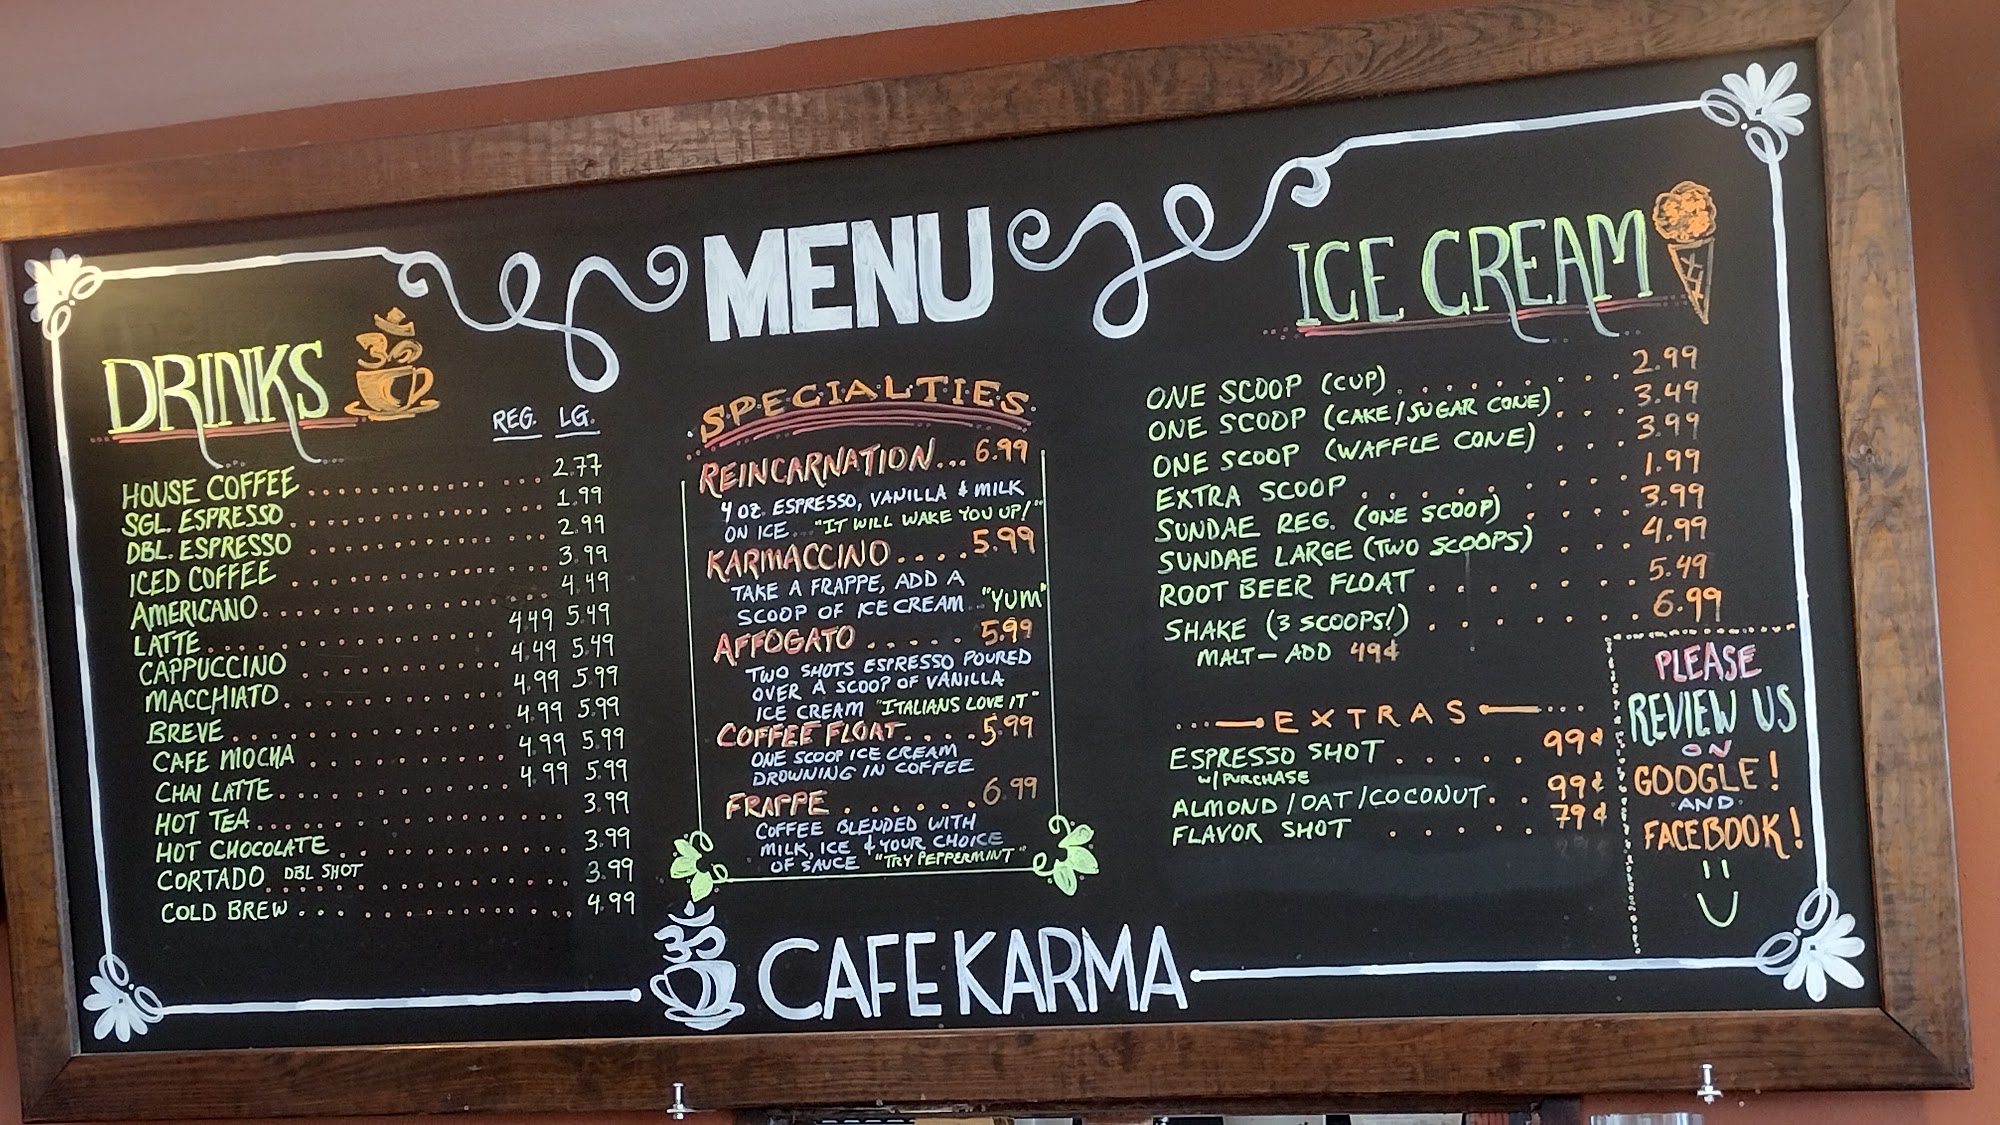 MENU
DRINKS
REG. LG.
HOUSE COFFEE 2.77
SGL. ESPRESSO 1.99
DBL. ESPRESSO 2.99
ICED COFFEE 3.99
AMERICANO 4.49
LATTE 4.49 5.49
CAPPUCCINO 4.49 5.49
MACCHIATO 4.99 5.99
BREVE 4.99 5.99
CAFE MOCHA 4.99 5.99
CHAI LATTE 4.99 5.99
HOT TEA 3.99
HOT CHOCOLATE 3.99
CORTADO DBL SHOT 3.99
COLD BREW 4.99
SPECIALTIES
REINCARNATION... 6.99
4 OZ. ESPRESSO, VANILLA & MILK
ON ICE... "IT WILL WAKE YOU UP!"
KARMACCINO.... 5.99
TAKE A FRAPPE, ADD A
SCOOP OF ICE CREAM.. "YUM"
AFFOGATO..... 5.99
TWO SHOTS ESPRESSO POURED
OVER A SCOOP OF VANILLA
ICE CREAM "ITALIANS LOVE IT"
COFFEE FLOAT.... 5.99
ONE SCOOP ICE CREAM
DROWNING IN COFFEE
FRAPPE...... 6.99
COFFEE BLENDED WITH
MILK, ICE & YOUR CHOICE
OF SAUCE "TRY PEPPERMINT"
ICE CREAM
ONE SCOOP (CUP) 2.99
ONE SCOOP (CAKE/SUGAR CONE) 3.49
ONE SCOOP (WAFFLE CONE) 3.99
EXTRA SCOOP 1.99
SUNDAE REG. (ONE SCOOP) 3.99
SUNDAE LARGE (TWO SCOOPS) 4.99
ROOT BEER FLOAT 5.49
SHAKE (3 SCOOPS!) 6.99
MALT - ADD 49¢
EXTRAS
ESPRESSO SHOT 99¢
W/PURCHASE
ALMOND/OAT/COCONUT 99¢
FLAVOR SHOT 79¢
PLEASE
REVIEW US
ON
GOOGLE!
AND
FACEBOOK!
CAFE KARMA